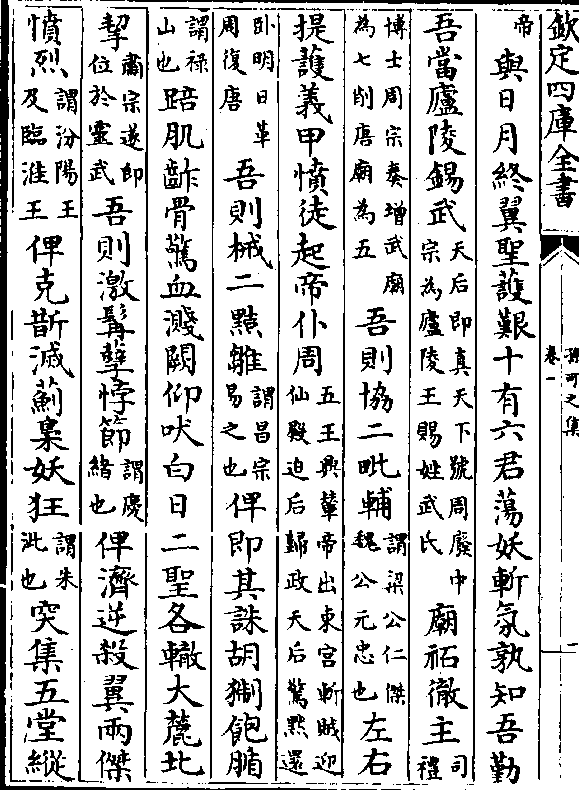 欽定四庫全書
孫可之集
卷一
一
帝與日月終翼聖護艱十有六君蕩妖斬氛孰知吾勤
吾當廬陵錫武天后即真天下號周廢中宗為廬陵王賜姓武氏廟祏徹主司禮
博士周宗奏增武廟為七削唐廟為五吾則協二毗輔謂梁公仁傑魏公元忠也左右
提護義甲憤徒起帝仆周五王興輦帝出東宫斬賊迎仙殿迫后歸政天后驚默還
卧明日革周復唐吾則械二黠雛謂昌宗易之也俾即其誅胡猘飽腯
謂祿山也踣肌齚骨驚血濺闕仰吠白日二聖各轍大麓北
挈肅宗遂即位於靈武吾則激髯孽悖節謂慶緒也俾濟逆殺翼兩傑
憤烈謂汾陽王及臨淮王俾克斮滅薊梟妖狂謂朱泚也突集五堂縱